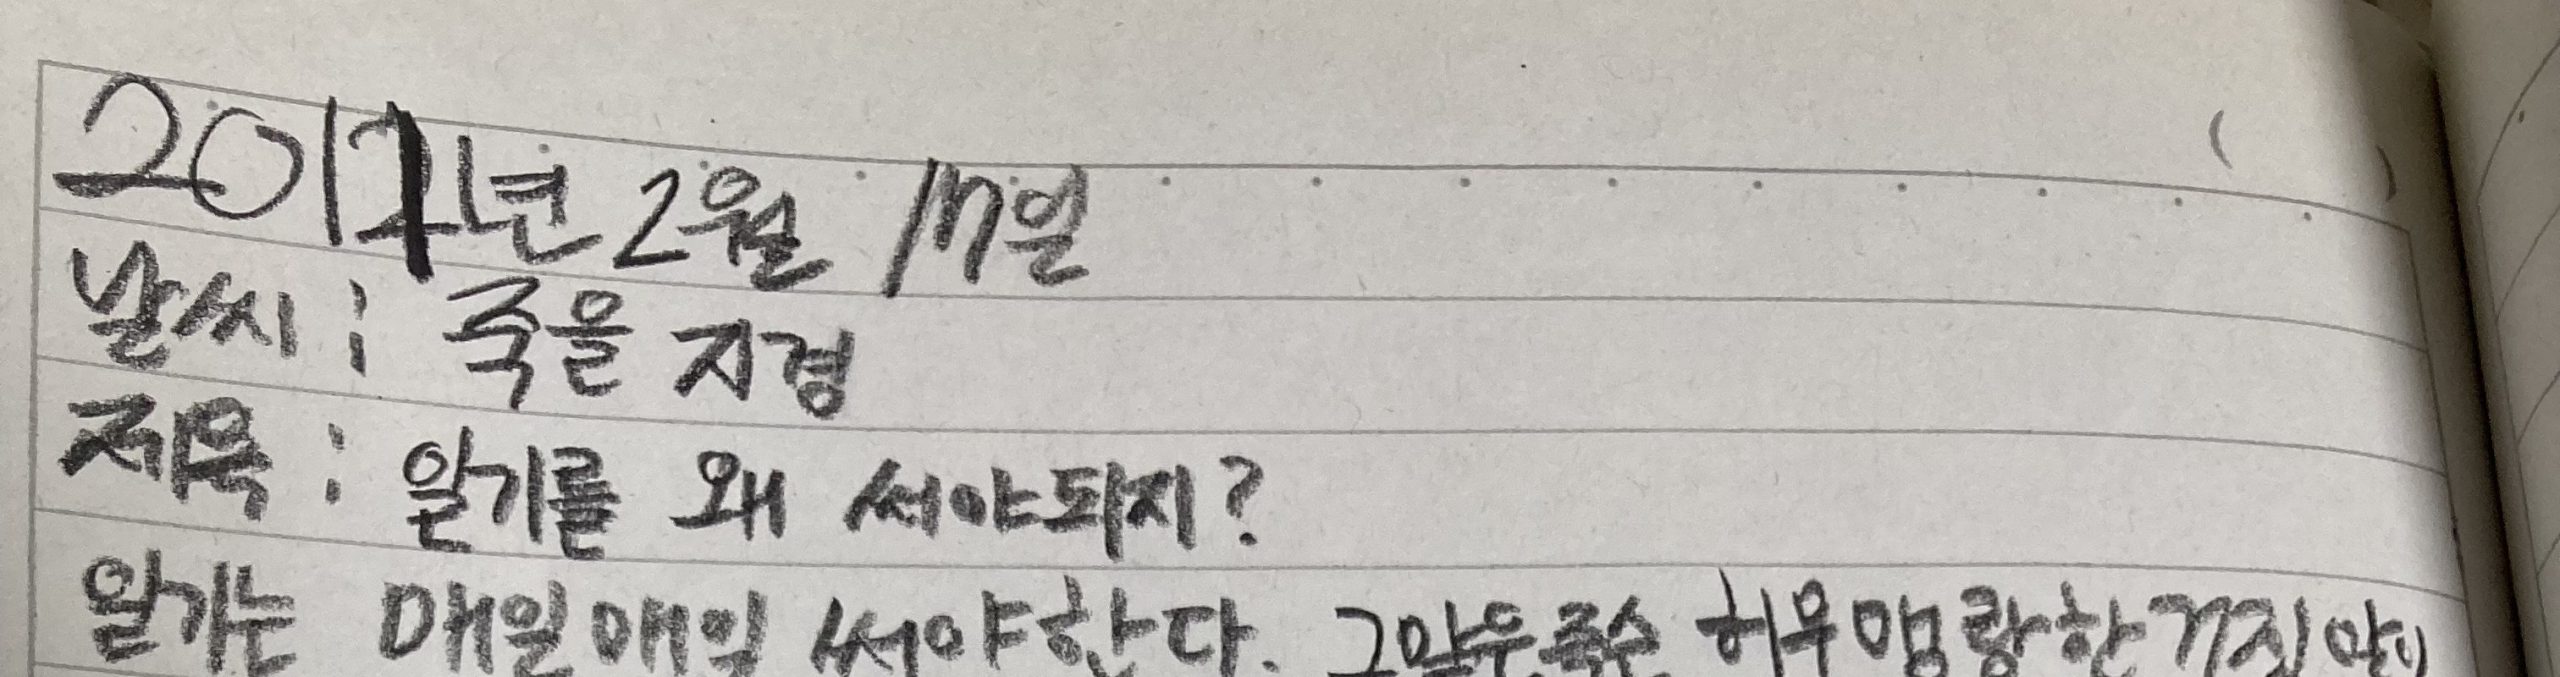 2017년 2월 17일
날씨 : 죽을 지경
제목 : 일기를 왜 써야되지?
일기는 매일매일 써야한다. 허무맹랑한 거짓말이